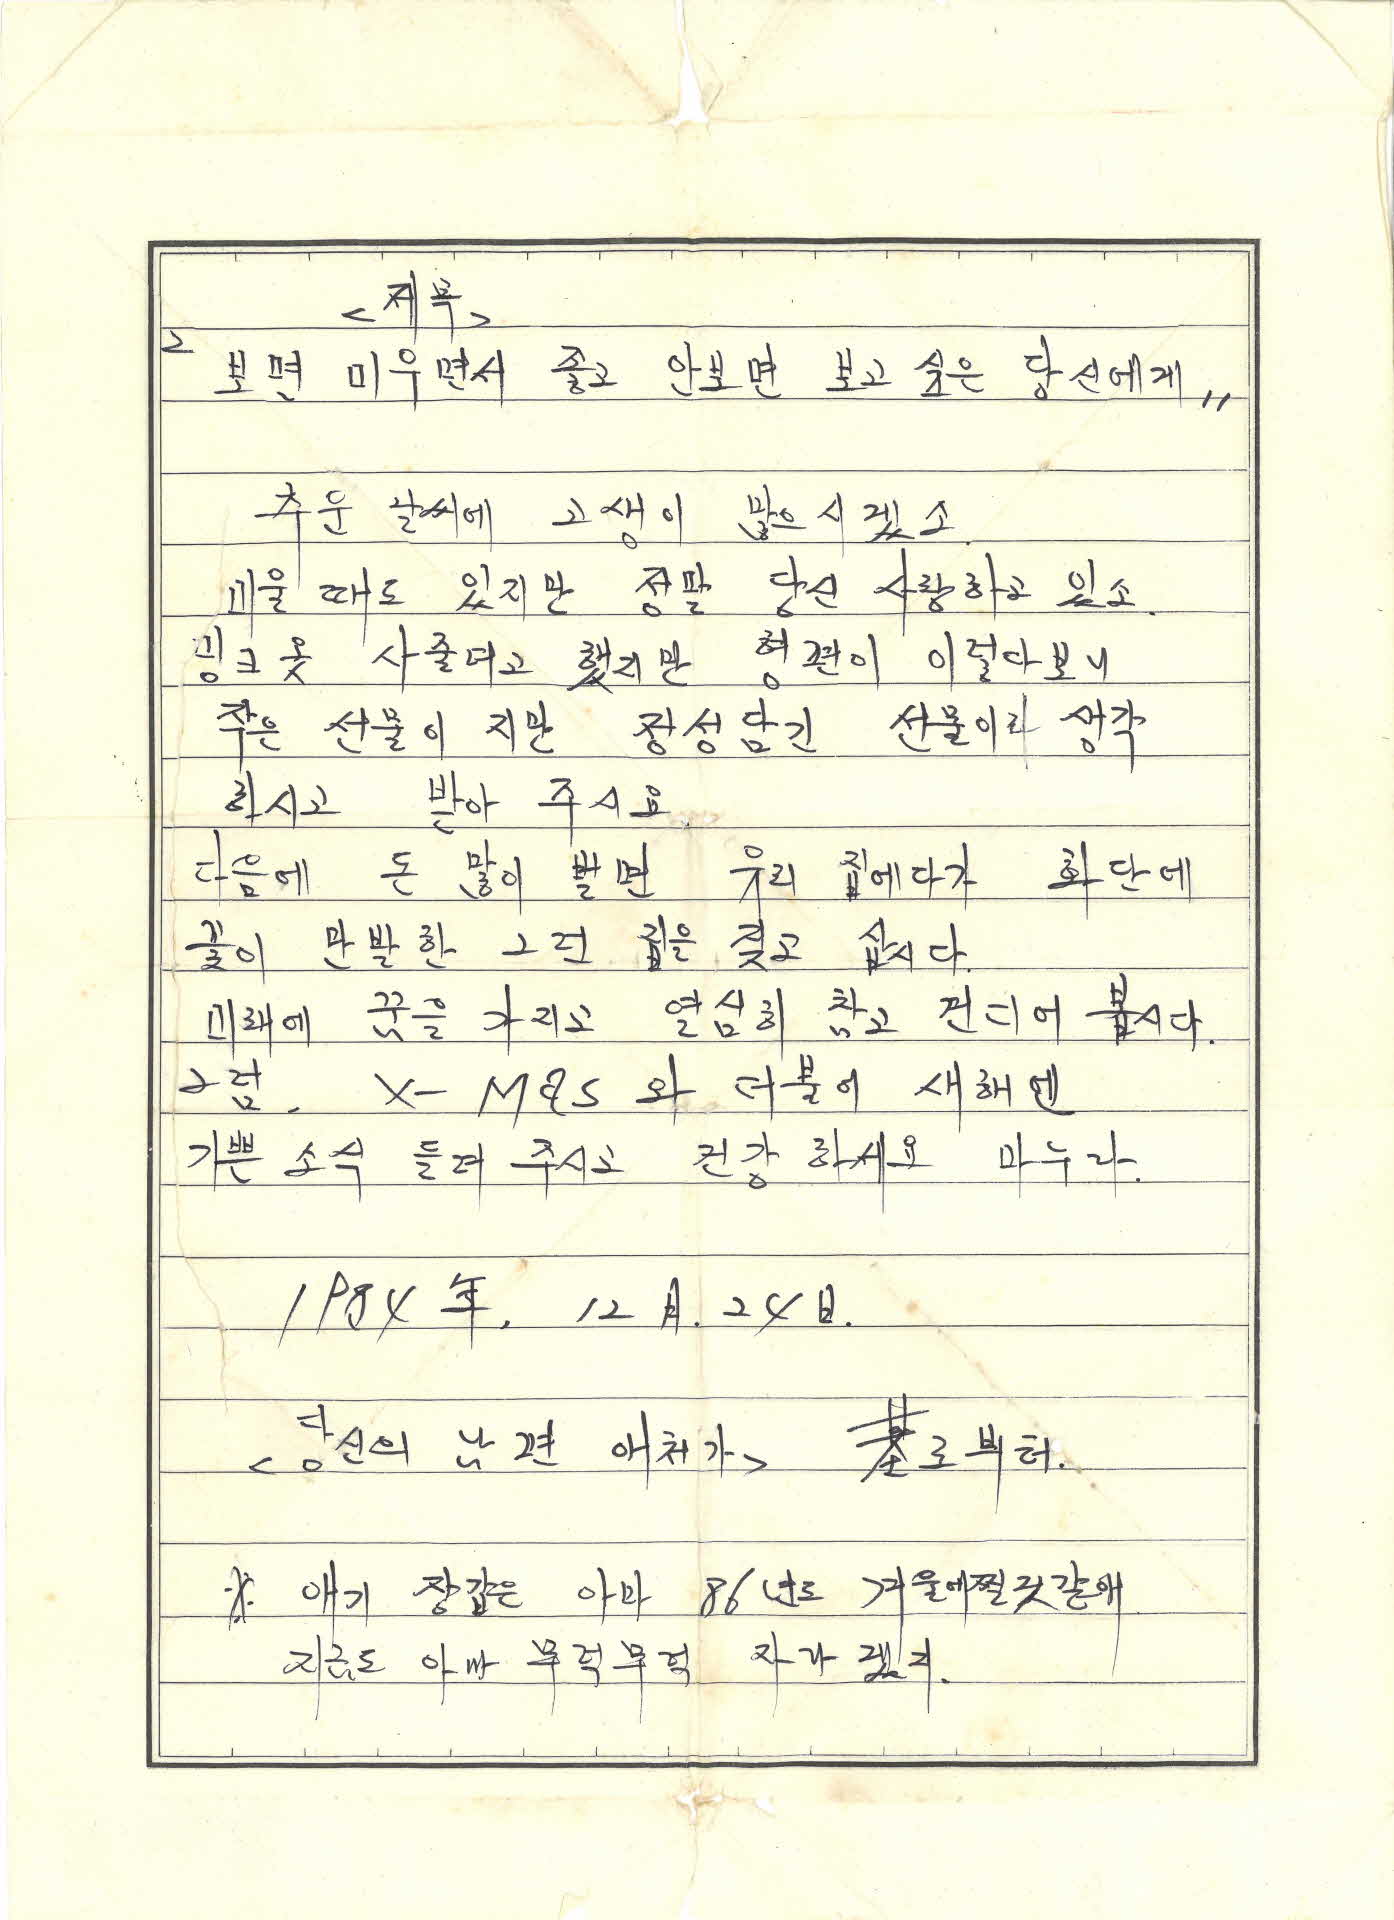 <제목>
보면 미우면서 좋고 안보면 보고싶은 당신에게 〃
추운 날씨에 고생이 많으시겠소.
미울 때도 있지만 정말 당신 사랑하고 있소.
밍크옷 사줄려고 했지만 형편이 이렇다보니
작은 선물이지만 정성담긴 선물이라 생각
하시고 받아 주시요.
다음에 돈 많이 벌면 우리 집에다가 화단에
꽃이 만발한 그런 집을 짖고 삽시다.
미래에 꿈을 가지고 열심히 참고 견디어 봅시다.
그럼. X-MAS 와 더불어 새해엔
기쁜 소식 들려 주시고 건강하세요 마누라.
1984年. 12月. 24日.
<당신의 남편 애처가> 로부터.
※ 애기 장갑은 아마 86년도 겨울에 낄것같애
지금도 아마 무럭무럭 자라겠지.